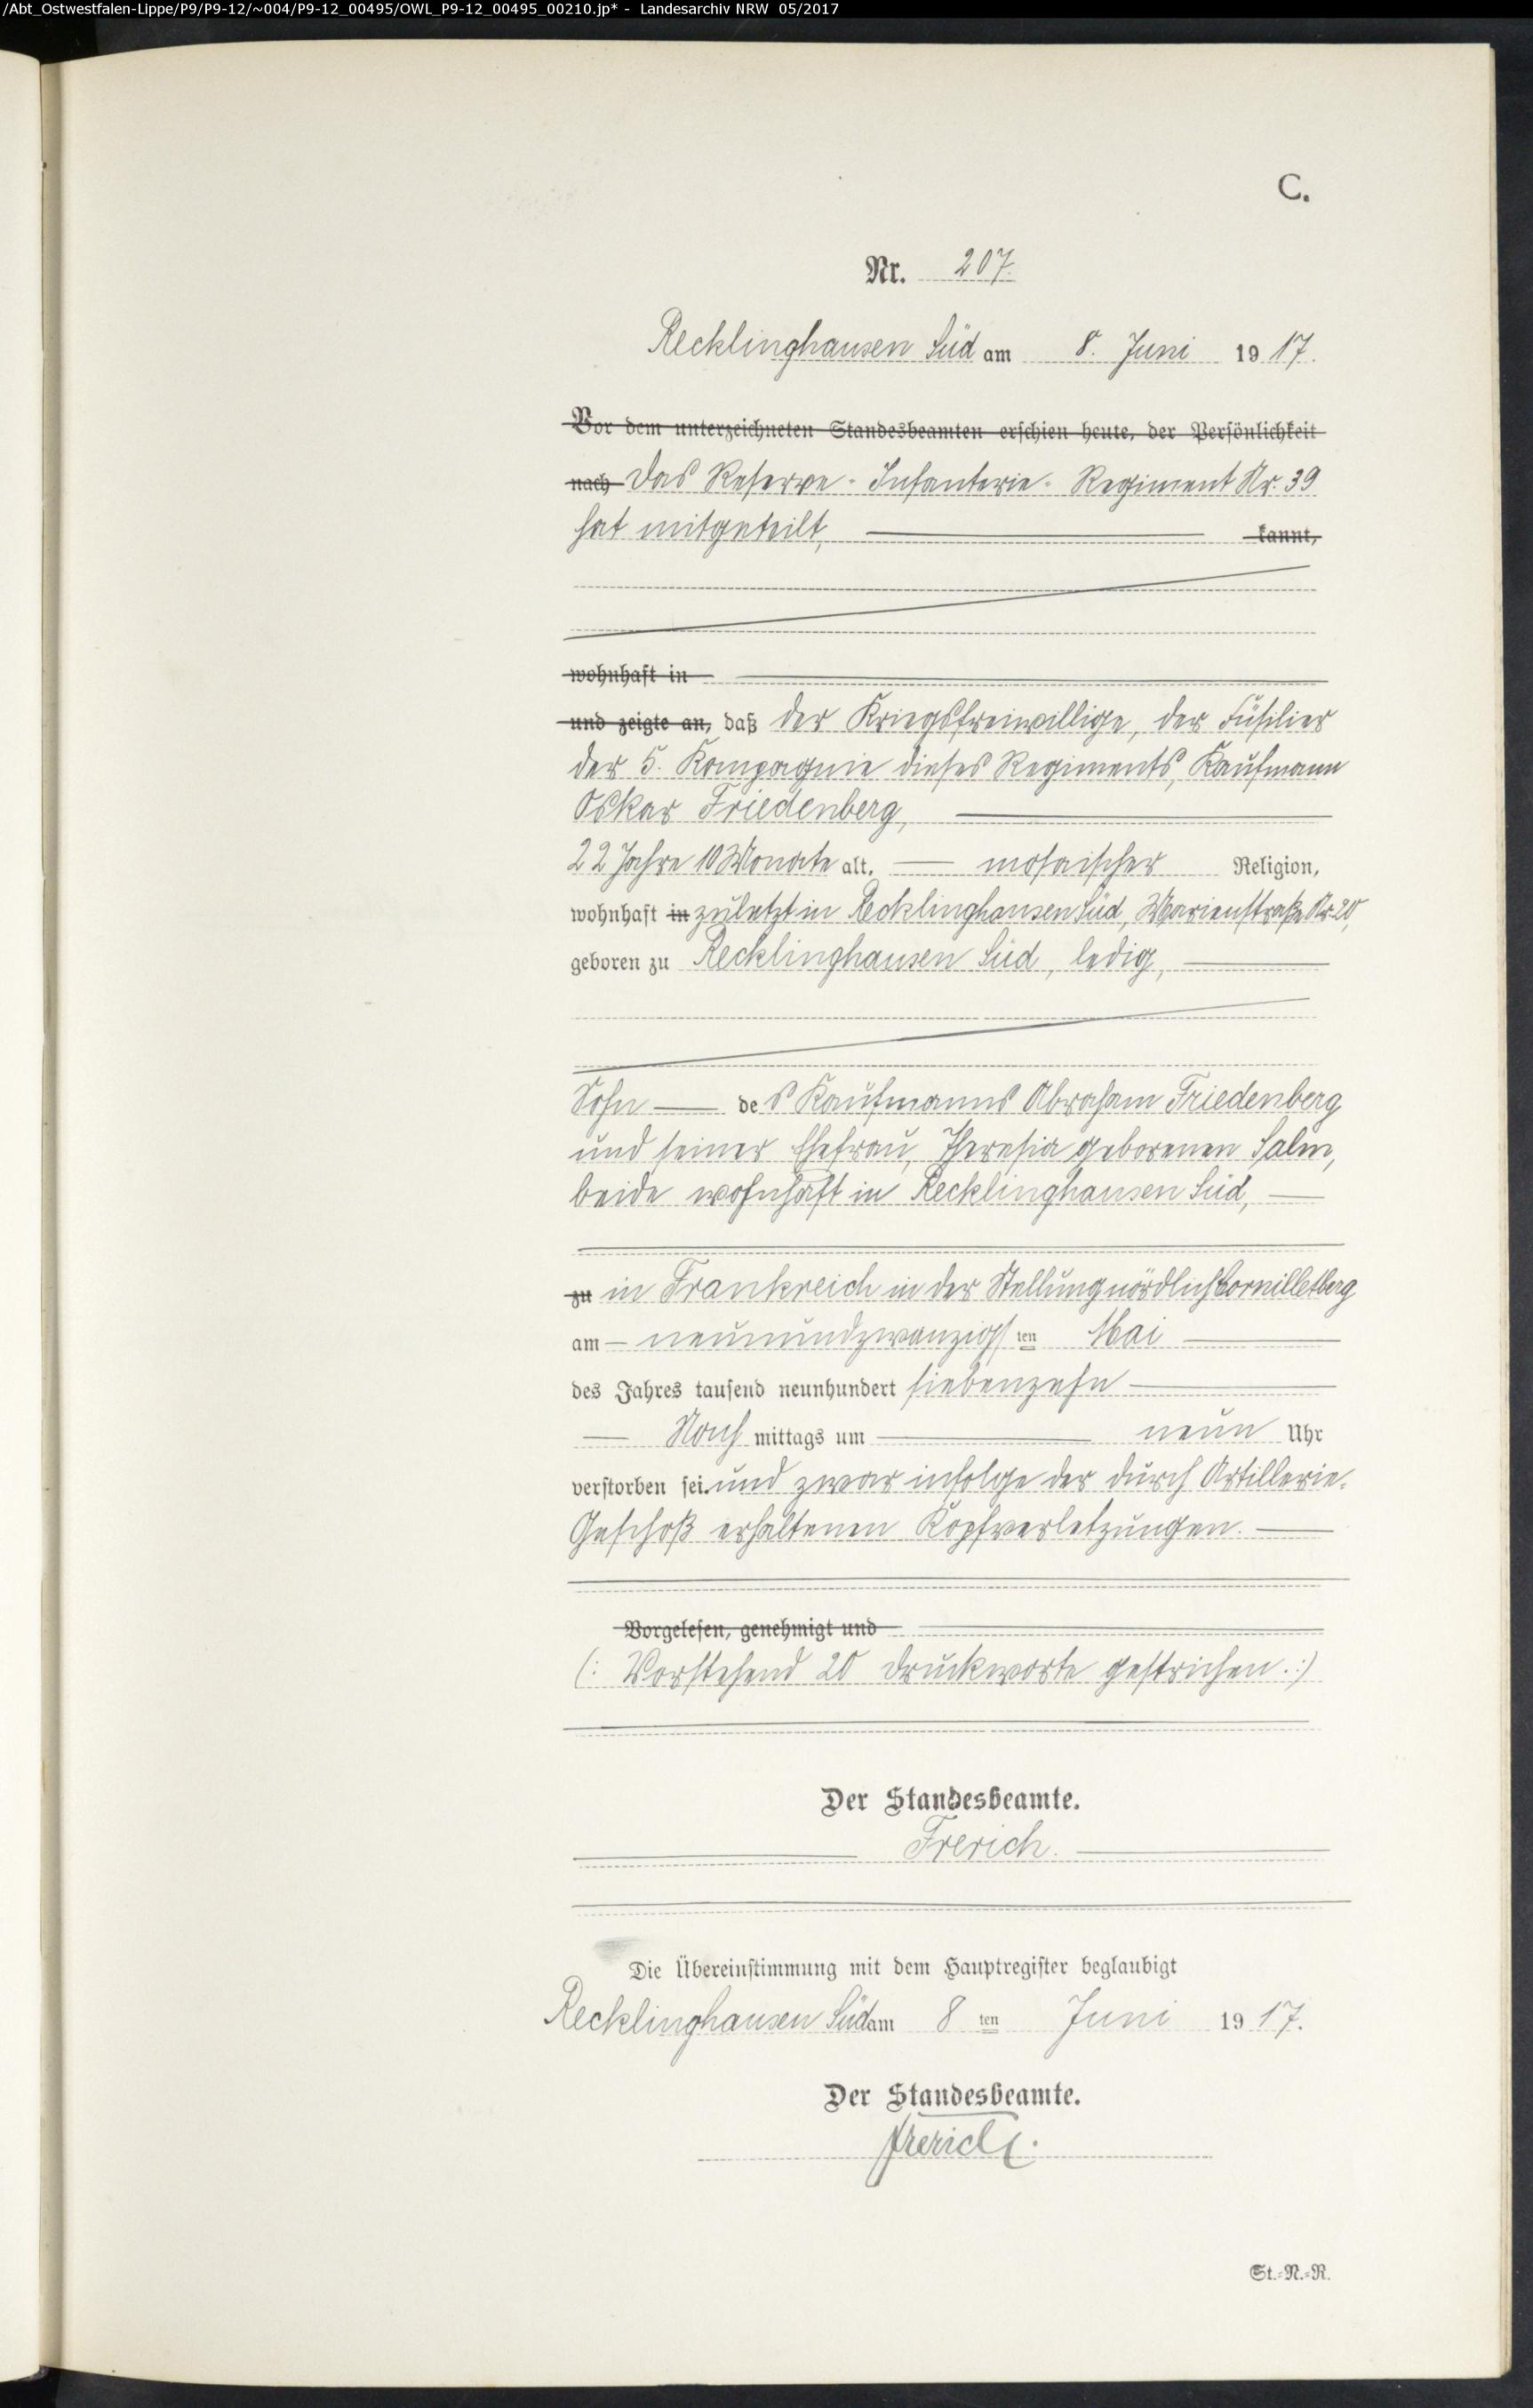 /Abt_Ostwestfalen-Lippe/P9/P9-12/~004/P9-12_00495/OWL_P9-12_00495_00210.jp* - Landesarchiv NRW 05/2017
C.
Nr. 207.
Recklinghausen Süd am 8. Juni 1917.
Vor dem unterzeichneten Standesbeamten erschien heute, der Persönlichkeit
nach Das Reserve-Infanterie-Regiment Nr. 39
hat mitgeteilt, kannt,
wohnhaft in
und zeigte an, daß der Kriegsfreiwillige, der Füsilier
der 5. Kompagnie dieses Regiments, Kaufmann
Oskar Friedenberg,
22 Jahre 10 Monate alt, mosaischer Religion,
wohnhaft in zuletzt in Recklinghausen Süd, Marienstraße Nr. 20,
geboren zu Recklinghausen Süd, ledig,
Sohn des Kaufmanns Abraham Friedenberg
und seiner Ehefrau, Theresia geborenen Salm,
beide wohnhaft in Recklinghausen Süd,
zu in Frankreich in der Stellung nördlich Cornilletberg
am neunundzwanzigsten Mai
des Jahres tausend neunhundert siebenzehn
Nach mittags um neun Uhr
verstorben sei. und zwar infolge der durch Artillerie-
Geschoß erhaltenen Kopfverletzungen.
Vorgelesen, genehmigt und
(: Vorstehend 20 Druckworte gestrichen. :)
Der Standesbeamte.
Frerich.
Die Übereinstimmung mit dem Hauptregister beglaubigt
Recklinghausen Süd am 8 ten Juni 1917.
Der Standesbeamte.
Frerich.
St.-N.-R.